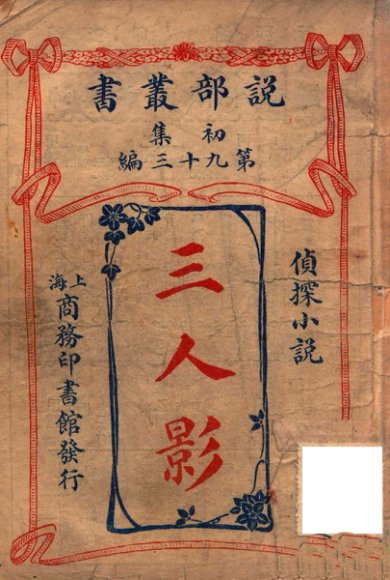 説部叢書
初集
第九十三編
偵探小説
三人影
上海
商務印書館發行